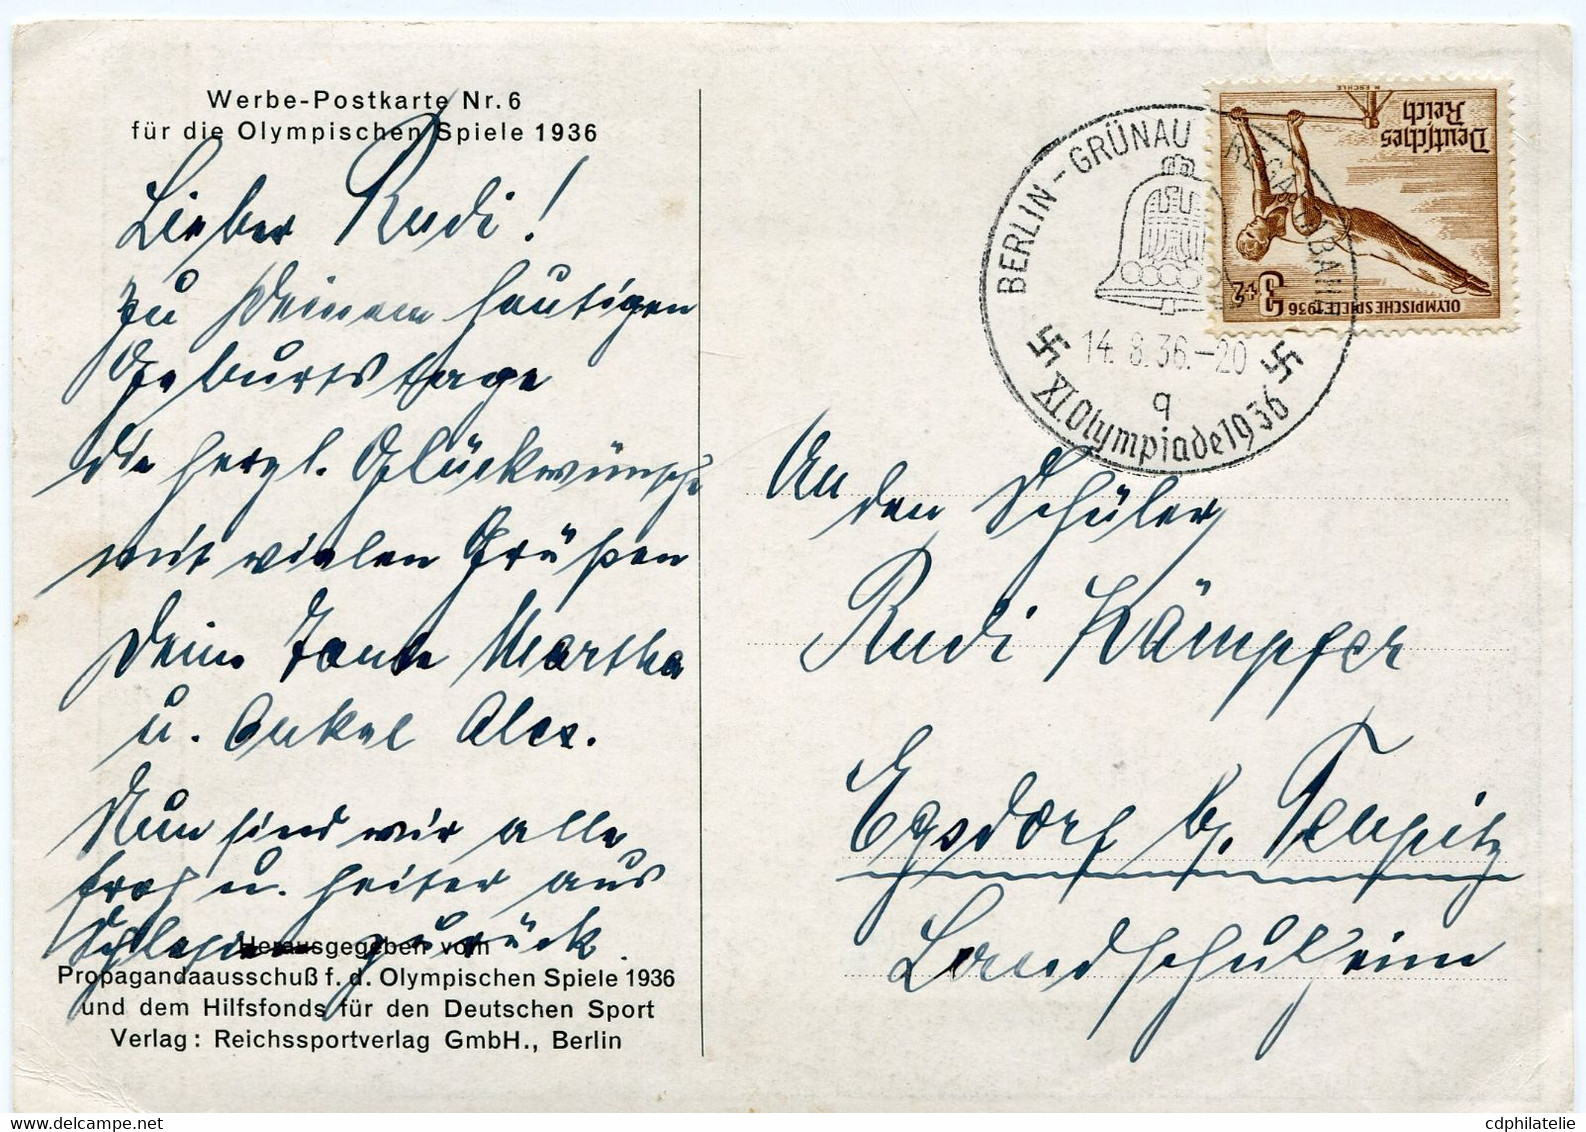 Werbe-Postkarte Nr. 6
für die Olympischen Spiele 1936
Lieber Rudi!
Zu Deinem heutigen
Geburtstage
die herzl. Glückwünsche
mit vielen Grüßen
Deine Tante Martha
u. Onkel Alex.
Nun sind wir alle
froh u. heiter aus
Schlesien zurück.
Herausgegeben vom
Propagandaausschuß f. d. Olympischen Spiele 1936
und dem Hilfsfonds für den Deutschen Sport
Verlag: Reichssportverlag GmbH., Berlin
BERLIN-GRÜNAU REGATTABAHN
14.8.36.-20
q
XI. Olympiade 1936
Deutsches
Reich
OLYMPISCHE SPIELE 1936
3+2
An
den Schüler
Rudi Kämpfer
Egsdorf b. Teupitz
Landschulheim
cdphilatelie